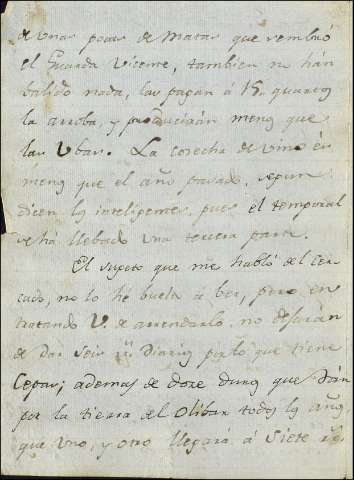 de unas pocas de Matas que rembió
el Guarda Vicente, tambien no hán
balido nada, las pagan á 15. quartos
la arroba, y producirán menos que
las Ubas. La cosecha de vino és
menos que el año pasado, segun
dicen los inteligentes, pues el temporal
se ha llebado una tercera parte.
El sugeto que me habló del Cer-
cado, no lo hé buelto á ber, pero en
tratando V. de arrendarlo, no dejarán
de Dar Seis rs. Diarios por lo que tiene
Cepas; ademas de doze duros que Dán
por la tierra del Olibar todos los años,
que uno, y otro llegará á Siete rs.